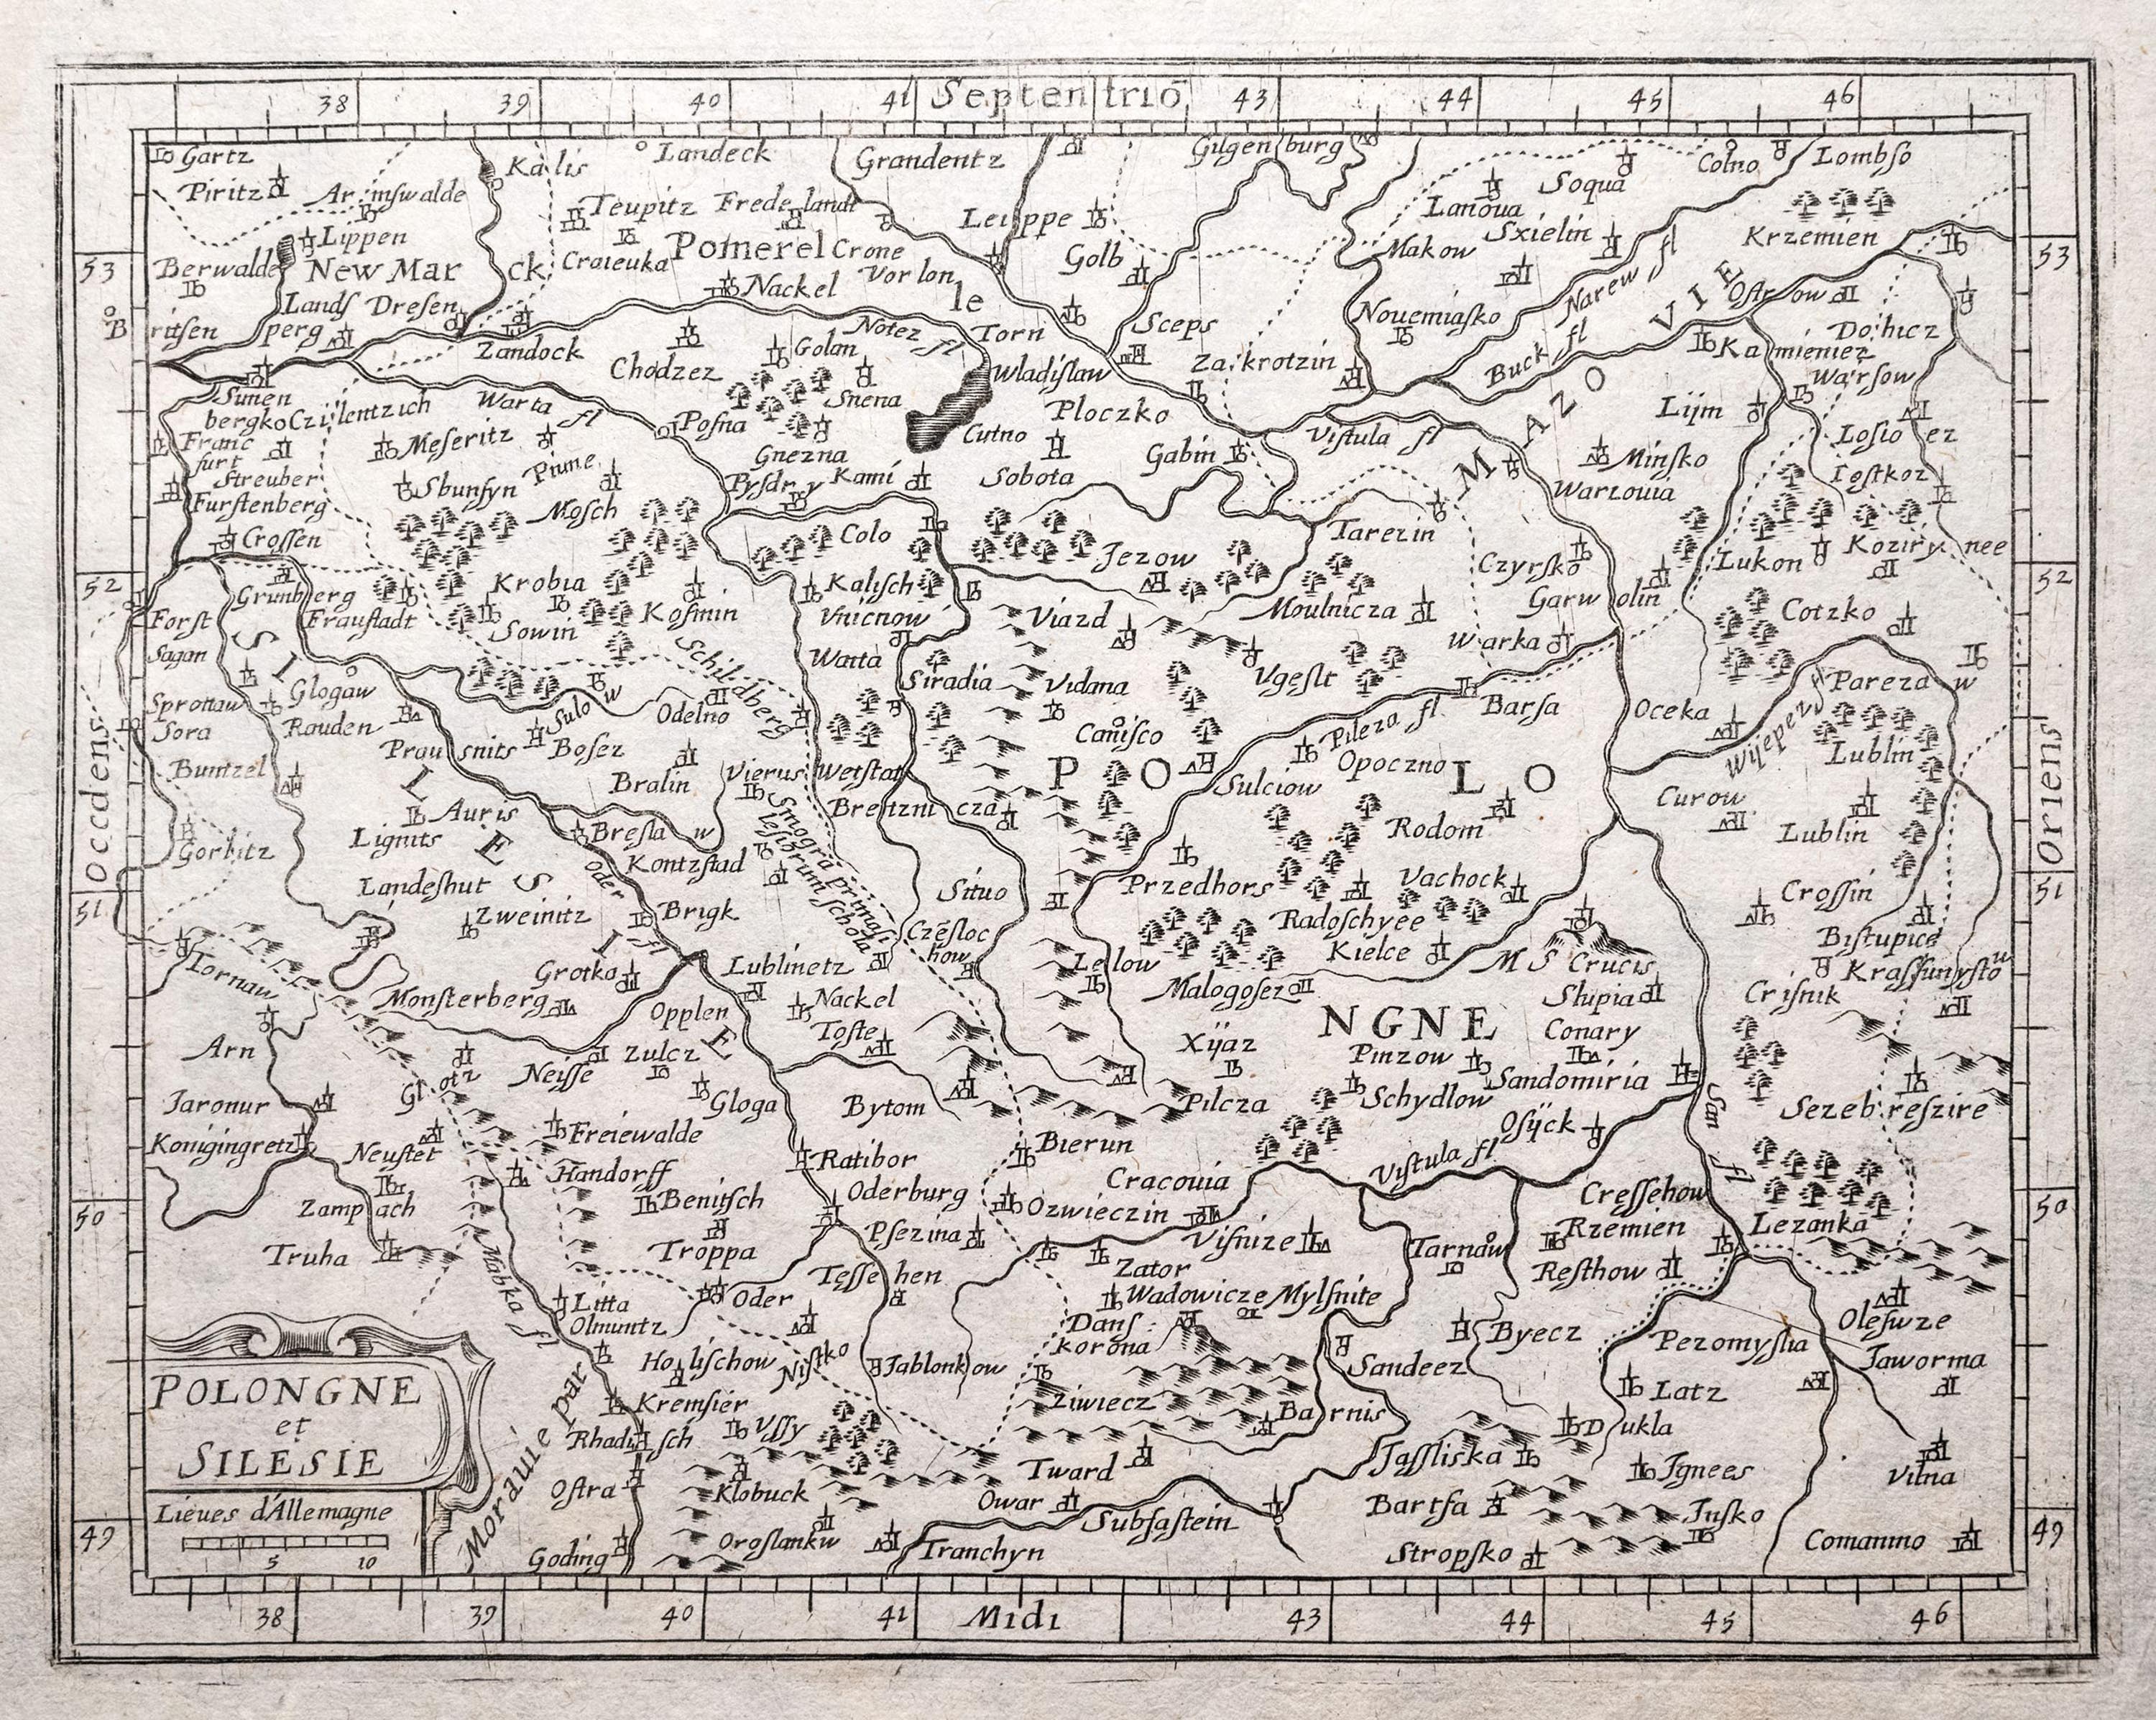 38 39 40 41 Septentrio 43 44 45 46
Gartz
Kalis
Landeck
Grandentz
Gilgenburg
Colno
Lombſo
Piritz
Arinſwalde
Teupitz
Fredelandt
Leiſppe
Lanoua
Soqua
Lippen
Craieuka
Pomerelle
Crone
Golb
Makow
Sxielin
Krzemien
Berwalde
New Marck
Nackel
Vorlon
Landſperg
Dreſen
Notez fl
Torn
Sceps
Nouemiaſko
Narew fl
Oſtrow
53
53
B
ritſen
Zandock
Chodzez
Golan
Wladiſlaw
Zakrotzin
Buck fl
Kamieniez
Warſow
Sunenberg
Snena
Ploczko
Lijm
koCzilentzich
Warta fl
Poſna
Cutno
Viſtula fl
Loſioez
Francfurt
Meſeritz
Gnezna
Gabin
MAZOVIE
Minſko
Streuber
Sbunſyn
Piune
Pyſdry
Kami
Sobota
Warzouia
Ioſtkoz
Furſtenberg
Moſch
Colo
Jezow
Tarezin
Croſſen
Krobia
Kaliſch
Czyrſko
Lukon
52
52
Grunberg
Garwolin
Forſt
Frauſtadt
Sowin
Koſmin
Vnicnow
Viazd
Moulnicza
Cotzko
Sagan
Schildberg
Warta
Warka
Glogaw
Siradia
Vidana
Vgeſlt
Parezaw
Sprottaw
Rauden
Sulow
Odelno
Barſa
Oceka
Sora
Prausnits
Boſez
Caniſco
Pileza fl
Buntzel
Bralin
Vierus
Wetſtat
POLONGNE
Opoczno
Lublin
Occidens
Oriens
Auris
Brentznicza
Sulciow
Curow
Lignits
Breſlaw
Rodom
Lublin
Gorlitz
SILESIE
Kontzſtad
Smogra primaſ
ieſlorum ſchola
Landeſhut
Oder fl
Situo
Przedhors
Vachock
Croſſin
51
51
Zweinitz
Brigk
Czeſlochow
Radoſchyee
Biſtupice
Grotka
Lublinetz
Lelow
Kielce
M S Crucis
Kraſſunyſtow
Tornaw
Monſterberg
Nackel
Malogoſez
Slupia
Criſnik
Opplen
Toſte
Xijaz
Conary
Arn
Glotz
Neiſſe
Zulcz
Pinzow
Sandomiria
Jaronur
Gloga
Bytom
Pilcza
Schydlow
San fl
Sezebreſzire
Konigingretz
Neuſtet
Freiewalde
Bierun
Oſijck
Handorff
Ratibor
Cracouia
Viſtula fl
50
50
Zampach
Benitſch
Oderburg
Ozwieczin
Creſſehow
Truha
Troppa
Pſezina
Viſnize
Tarnaw
Rzemien
Lezanka
Mabka fl
Teſſehen
Zator
Reſthow
Litta
Oder
Wadowicze
Mylſnite
Oleſwze
Olmuntz
Danſkorona
Byecz
Pezomyſlia
POLONGNE
et
SILESIE
Holiſchow
Niſtko
Jablonkow
Sandeez
Jaworma
Kremſier
Ziwiecz
Barnis
Latz
Rhadiſch
Vſſy
Dukla
Morauie par
Tward
Jaſſliska
Jgnees
Vilna
Lieues d'Allemagne
Oſtra
Klobuck
Owar
Bartſa
Jnſko
5 10
Oroſlankw
Subſaſtein
49
49
Goding
Tranchyn
Stropſko
Comanino
38 39 40 41 Midi 43 44 45 46